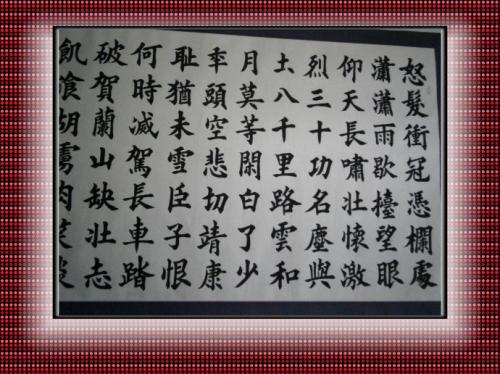 怒髮衝冠憑欄處
瀟瀟雨歇擡望眼
仰天長嘯壯懷激
烈三十功名塵與
土八千里路雲和
月莫等閑白了少
秊頭空悲切靖康
耻猶未雪臣子恨
何時滅駕長車踏
破賀蘭山缺壯志
飢飡胡虜肉笑